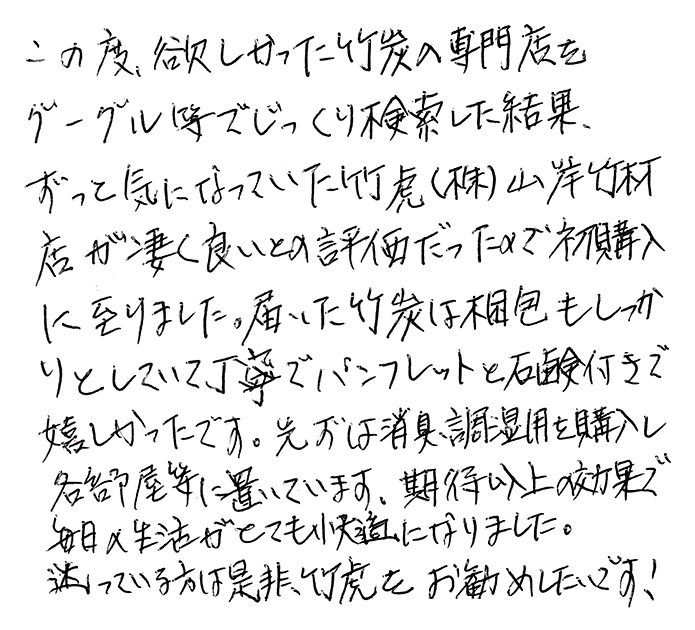 この度、欲しかった竹炭の専門店を
グーグル等でじっくり検索した結果、
ずっと気になっていた竹虎(株)山岸竹材
店が凄く良いとの評価だったので初購入
に至りました。届いた竹炭は梱包もしっか
りとしていて丁寧でパンフレットと石鹸付きで
嬉しかったです。先ずは消臭、調湿用を購入し
各部屋等に置いています。期待以上の効果で
毎日の生活がとても快適になりました。
迷っている方は是非、竹虎をお勧めしたいです!